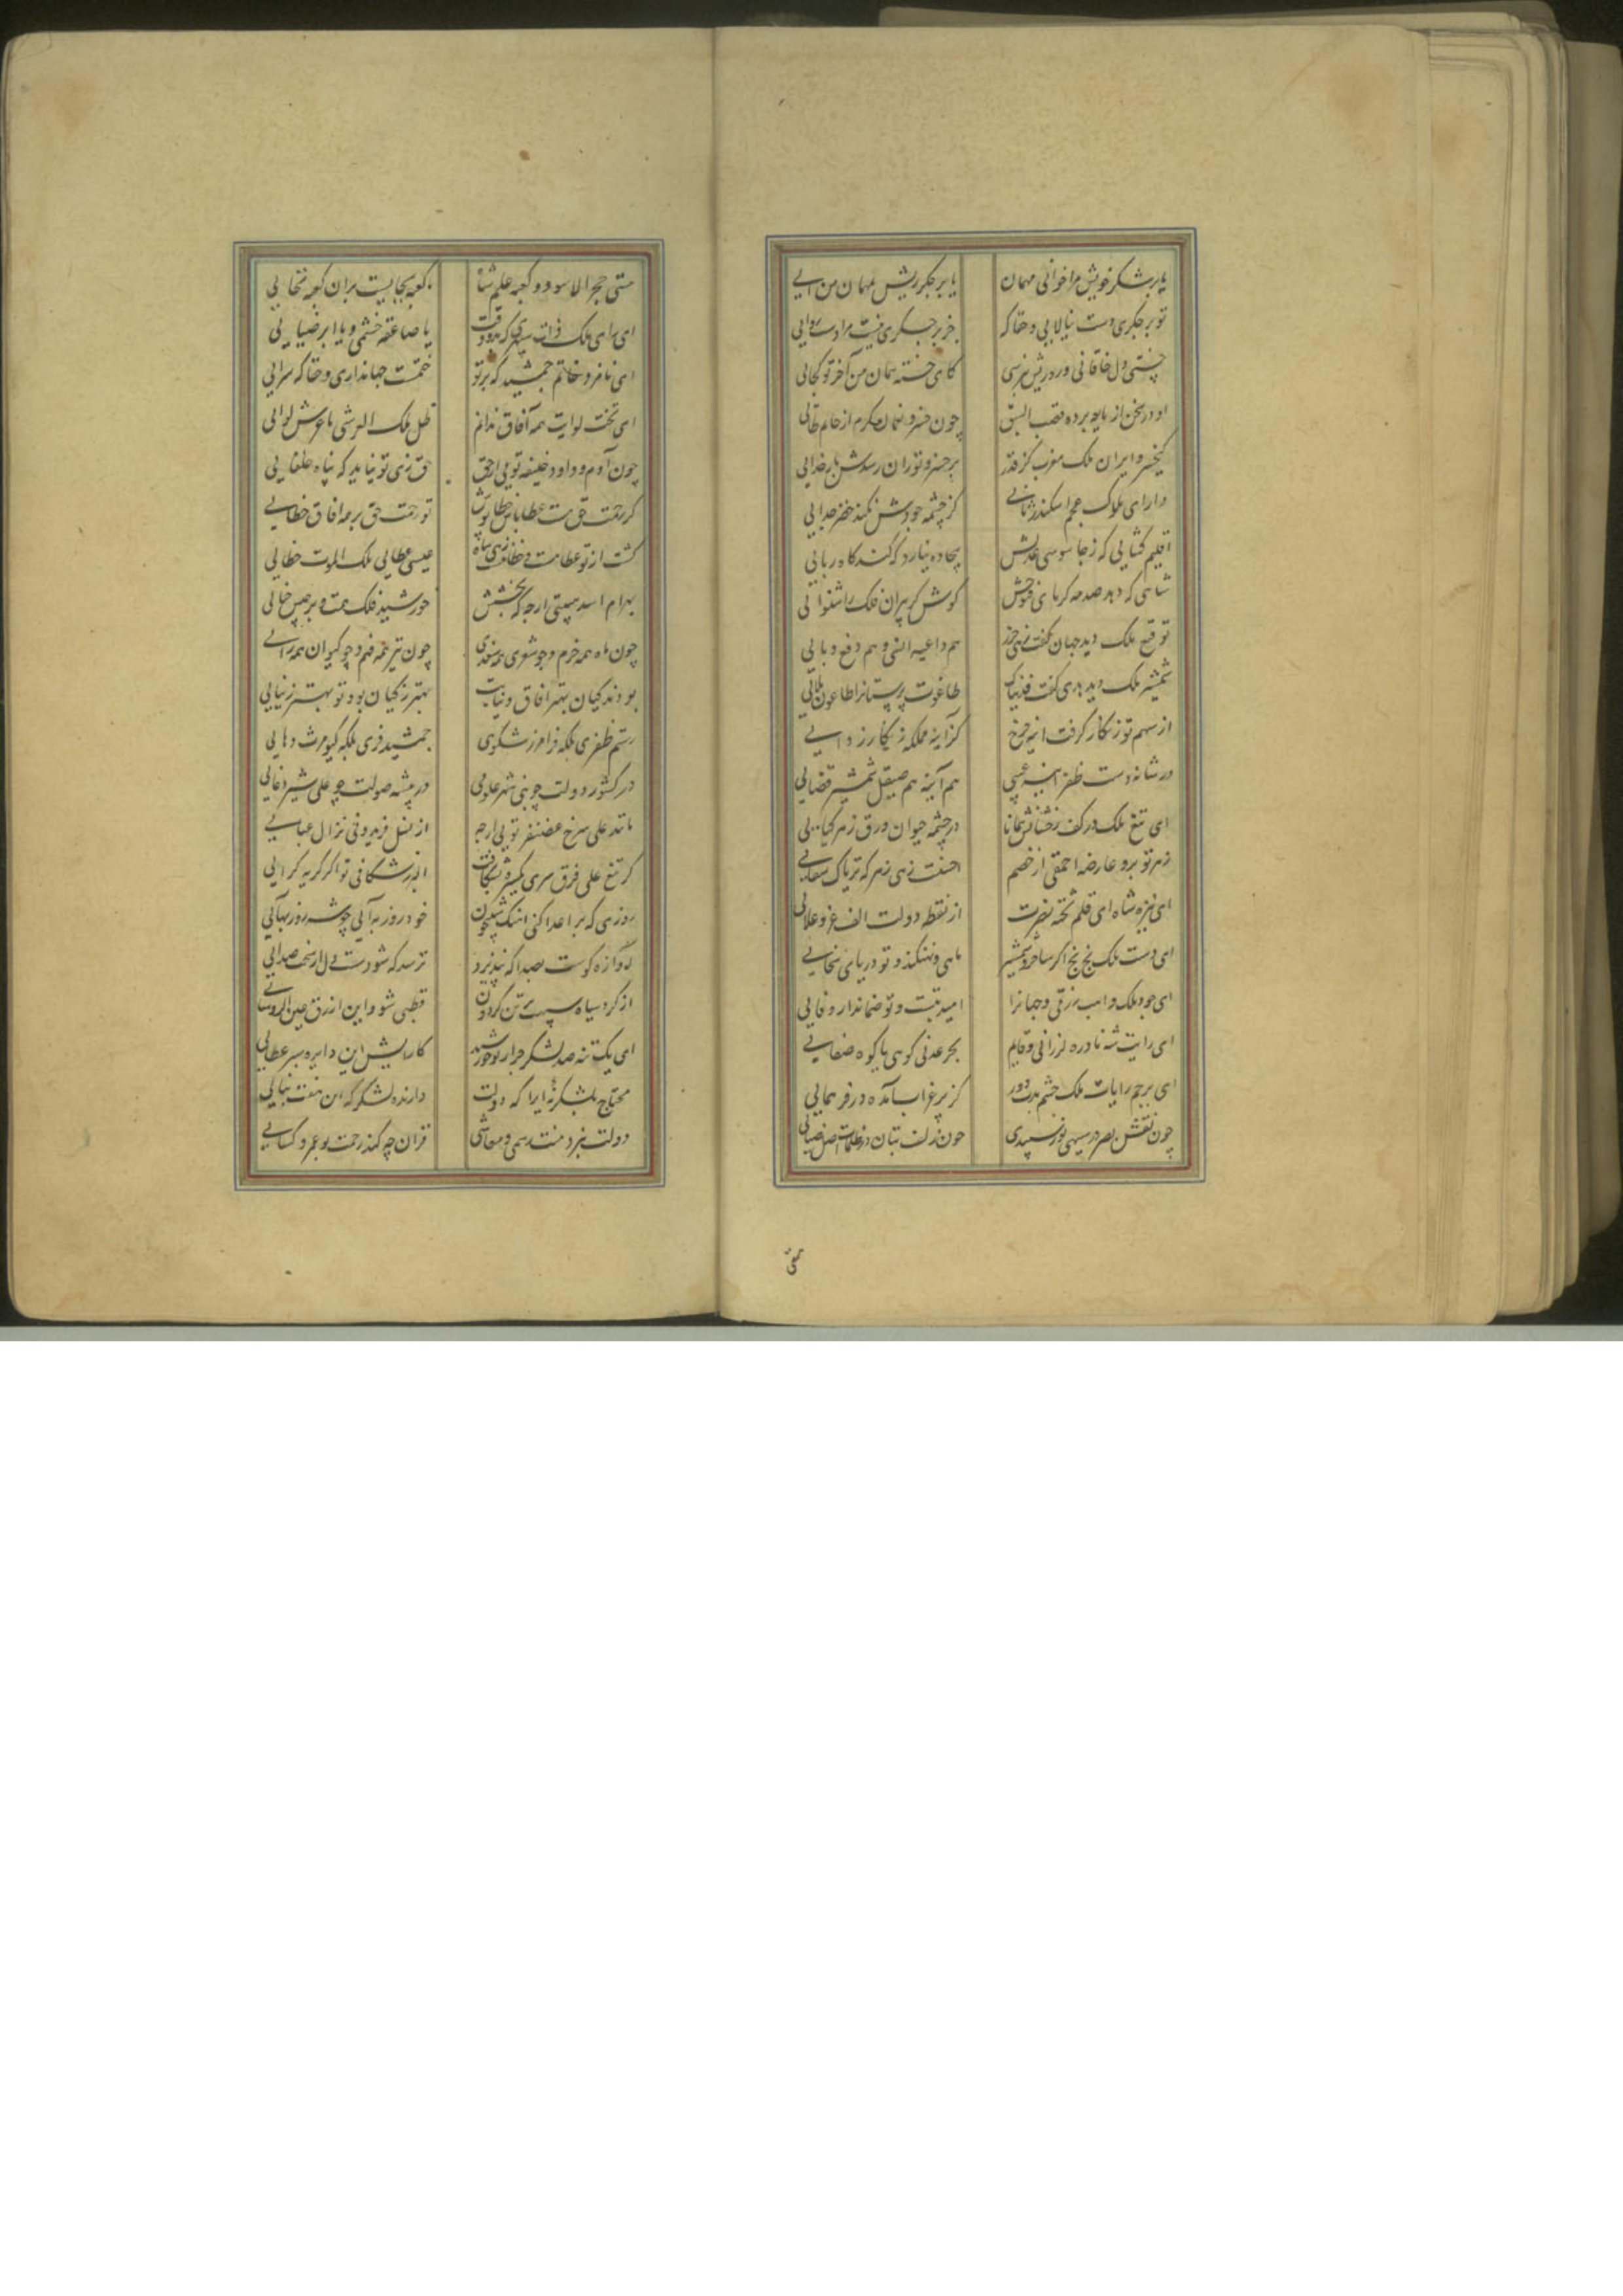 یا بر شکر خویش مرا خوانی مهمان
یا بر جگر ریش بمهمان من آیی
تو بر جگری دست نیالایی و حقا که
جز بر جگری نیست مرا دست روایی
جستی دل خاقانی و در دیش نپرسی
کای خسته پیمان من آخر تو کجایی
او در سخن از بابویه برده قصب السبق
چون خسرو نعمان کرم از حاتم طایی
کیخسرو ایران ملک مغرب کز قدر
بر خسرو توران رسدش بار خدایی
دارای ملوک عجم اسکندر ثانی
کز چشمه جودش نکند خضر جدایی
اقلیم کشایی که ز جاسوسی عدلش
بیجاده نیارد که کند کاه ربایی
شاهی که دهد صدمه کرنای فتوحش
گوش کر پیران فلک را شنوایی
توقیع ملک دید جهان گفت زهی حرز
هم داعیه امنی و هم دفع وبایی
شمشیر ملک دید بدی گفت فدیناک
طاغوت پرستانرا طاعون بلایی
از سهم تو زنگار گرفت آینه چرخ
کز آینه مملکه زنگار زدایی
در شانه دست ظفر آینه غیبی
هم آینه هم صیقل شمشیر قضایی
ای تیغ ملک در کف رخشانش همانا
در چشمه حیوان ورق زهر گیایی
زهر تو برد عارضه احمقی از خصم
احسنت زهی زهر که تریاک شفایی
ای نیزه شاه ای قلم تخته نصرت
از نقطه دولت الف عز و علایی
ای دست ملک بخ بخ اگر ساغر و شمشیر
ماهی و نهنگند و تو دریای سخایی
ای جود ملک واهب رزقی و جهانرا
امید بتست و تو ضماندار وفایی
ای رایت شه نادره لرزانی و قایم
بحر عدنی گویی یا کوه صفایی
ای پرچم رایات ملک چشم بدت دور
کز پر غراب آمده در فر همایی
چون نقش بصر در سیهی نور سپیدی
چون زلف بتان در ظلمات اصل ضیایی
نی نی
نی نی حجر الاسود و کعبه علم شاه
کعبه بحجابیست بران کعبه نتابی
ای رای ملک ذات سپهری که بدو وقت
یا صاعقه خشمی و یا ابر ضیایی
ای نافذ و خاتم جمشید که بر تو
ختمست جهانداری و حقا که سزایی
ای تخت لوایت همه آفاق ندانم
ظل ملک العرشی یا عرش لوایی
چون آدم و داود خلیفه تویی از حق
حق زی تو نیاید که پناه خلفایی
گر رحمت حق هست عطاپاش خطاپوش
تو رحمت حق بر همه آفاق خطایی
گشت از تو عطا مست و خطا مست زهی شاه
عیسی عطایی ملک الموت خطایی
بهرام اسد هیبتی ارچه که بخشش
خورشید فلک همت و برجیس حیایی
چون ماه همه خرم و چو شعری همه سعدی
چون تیر همه فهم و چو کیوان همه رایی
بودند کیان بهتر آفاق و نیابت
بهتر ز کیان بود و تو بهتر ز نیایی
رستم ظفری بلکه فرامرز شکوهی
جمشید فری بلکه کیومرث دهایی
در کشور دولت چو نبی شهر علومی
در بیشه صولت چو علی شیر وغایی
مانند علی سرخ غضنفر تویی ارچه
از نسل فریدونی نز آل عبایی
گر تیغ علی فرق سری یکسره بشکافت
البرز شکافی تو اگر گریه گرایی
روزی که بر اعدا کنی آهنگ شبیخون
خود روز بر آیی چو شه روز بهایی
آوازه کوست بصدا که نپذیرد
ترسد که شود سست دل از سخت صدایی
از گرد سیاه سپهت تن گردون
قطبی شود این ازرق عین الروسایی
ای یک تنه صد لشکر جرار چو خورشید
کارایش این دایره سبز عطایی
محتاج بلشکر نه ایرا که دولت
دارنده لشکر گه این هفت بنایی
دولت نبرد منت رسمی و معاشی
قرآن چه کند زحمت بو عمرو کسایی